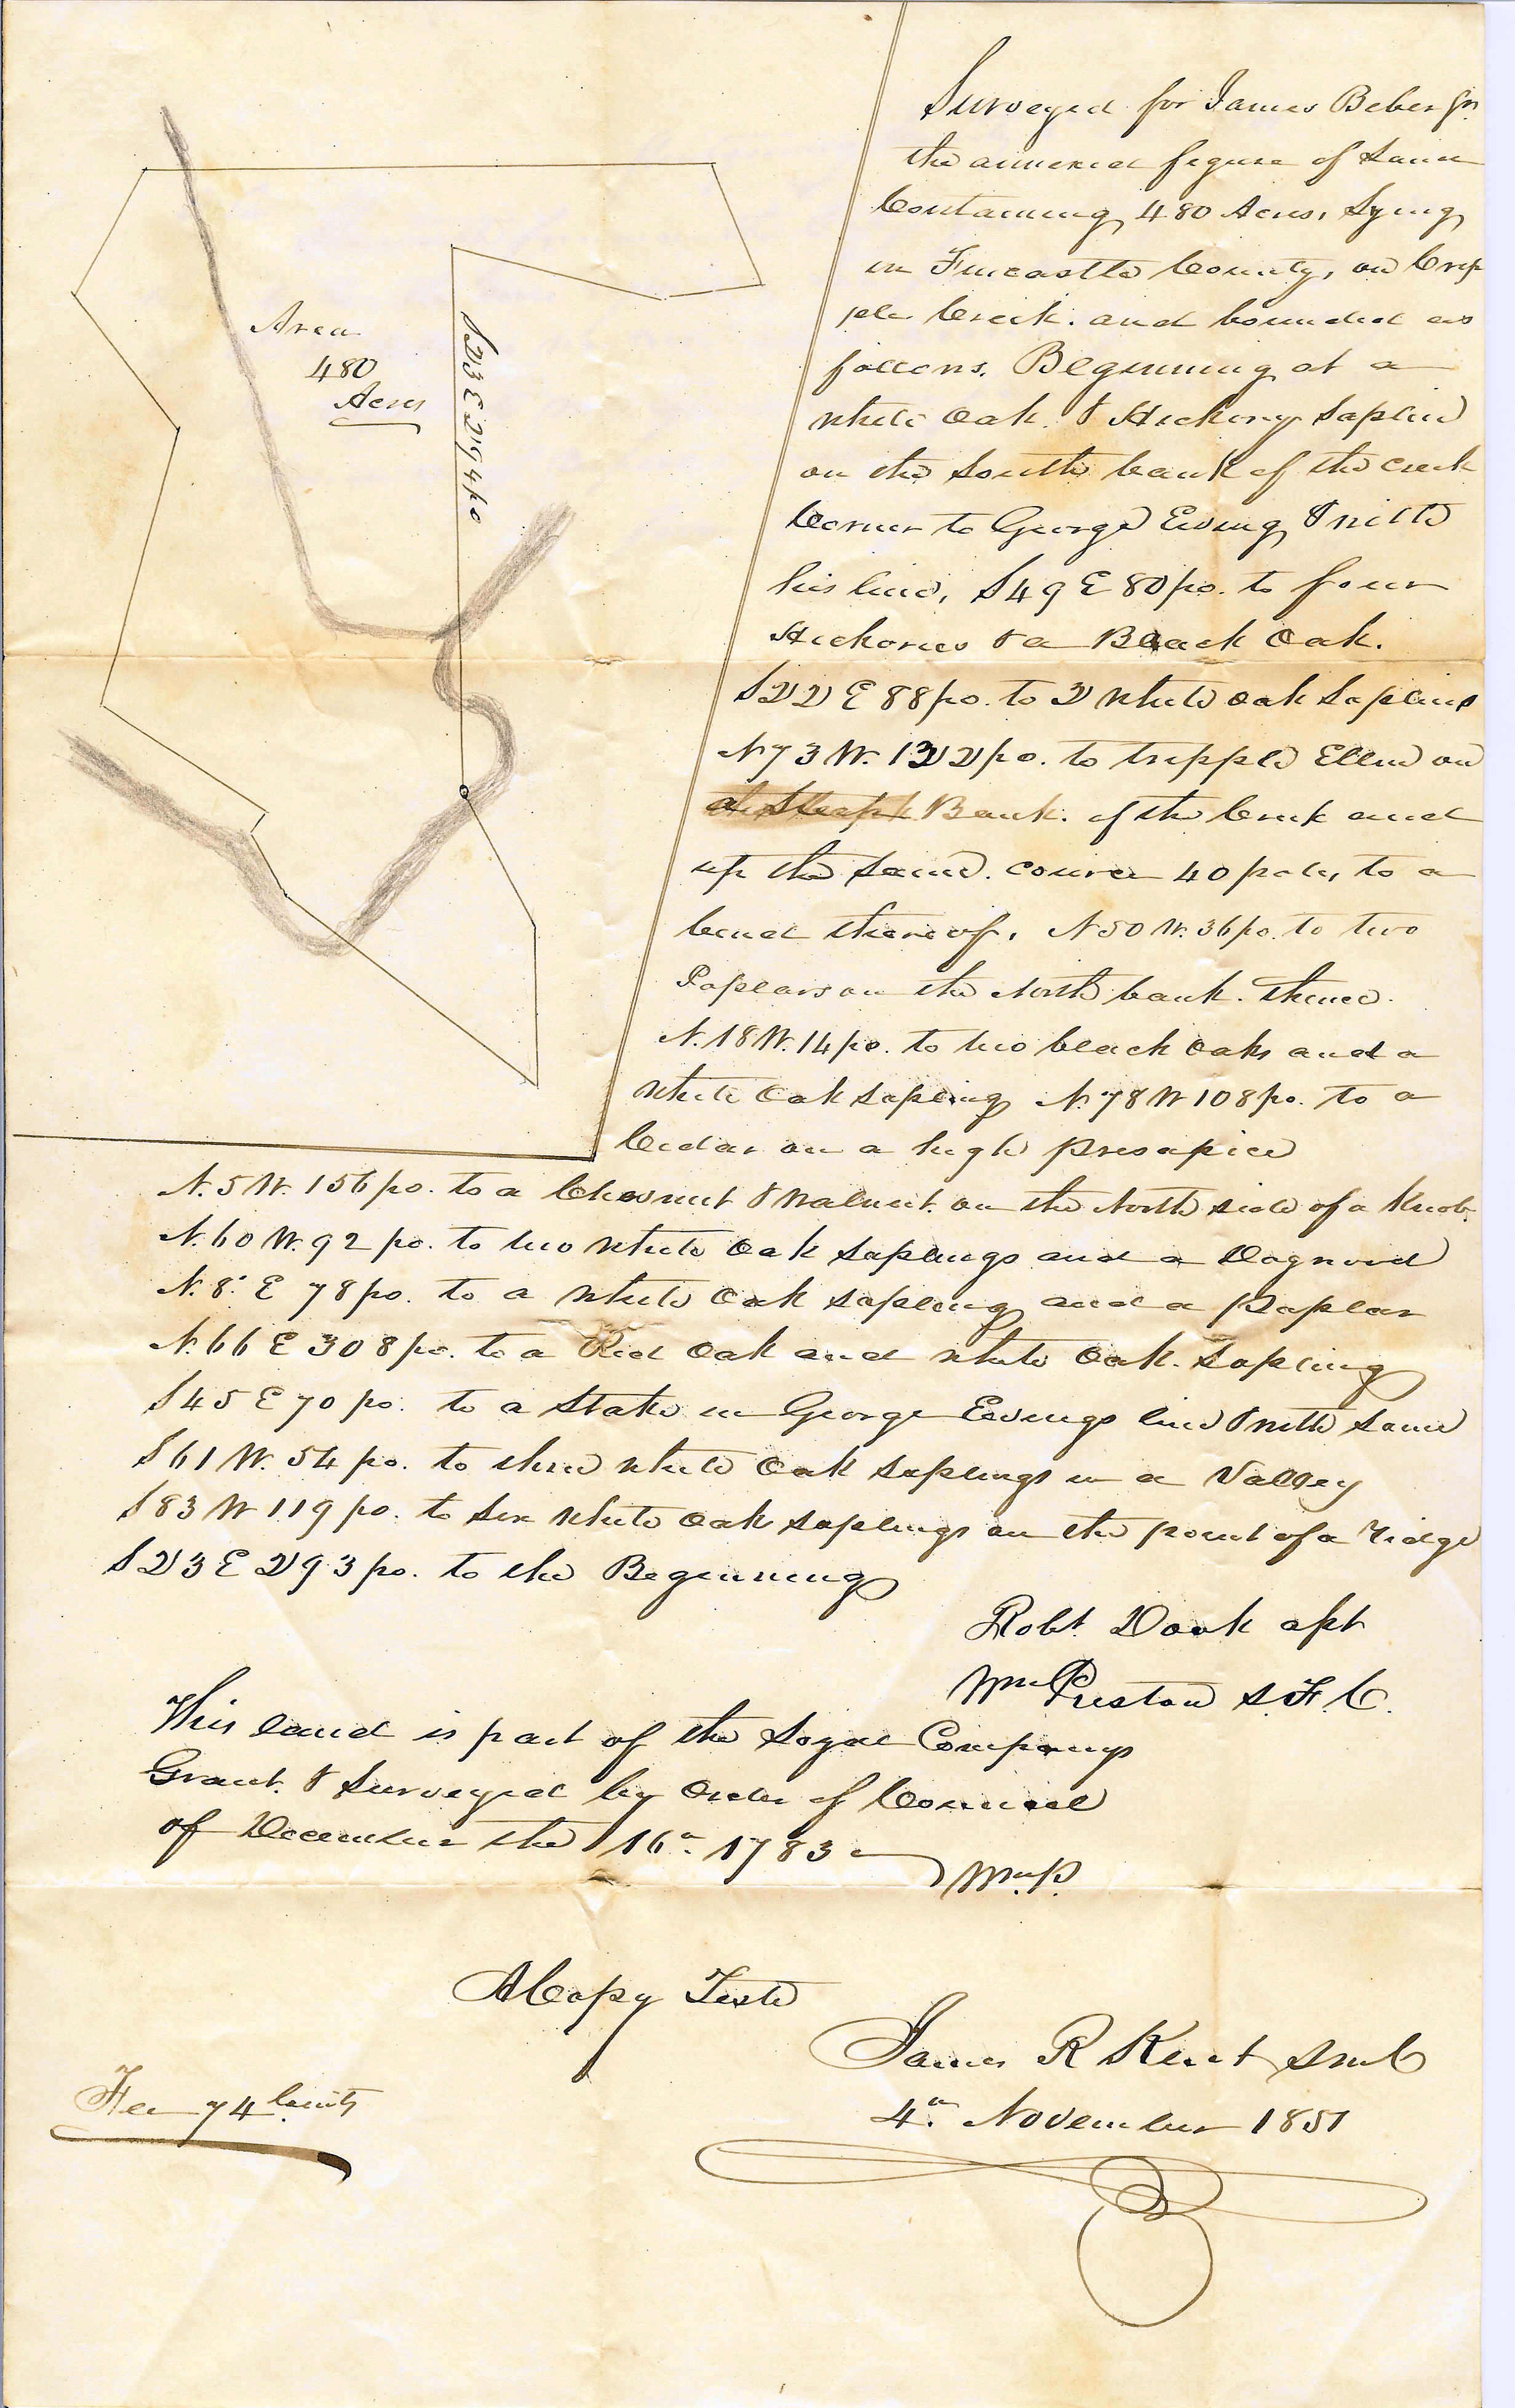 Surveyed for James Beber Jr.
the annexed figure of Land
Containing 480 Acres, Lying
in Fincastle County, on Crip
ple Creek. and bounded as
follows. Beginning at a
White Oak & Hickory Saplin
on the South bank of the creek
Corner to George Ewing & with
his line, S49 E 80 po. to four
Hickories & a Black Oak.
S22 E 88 po. to 2 White Oak Saplins
N73 W. 122 po. to tripple Ellm on
Bank. of the Creek and
up the same. course 40 poles, to a
bend thereof. N50 W. 36 po. to two
Poplars on the North bank. thence.
N. 18 W. 14 po. to two black Oaks and a
White Oak sapling N. 78 W 108 po. to a
Cedar on a high Presapice
N. 5 W. 156 po. to a Chesnut & Walnut. on the North side of a Knob
N. 60 W. 92 po. to two White Oak Saplings and a Dogwood
N. 8. E 78 po. to a White Oak sapling and a Poplar
N. 66 E 308 po. to a Red Oak and White Oak. Sapling
S45 E 70 po. to a Stake in George Ewings line & with same
S61 W. 54 po. to three White Oak Saplings in a Valley
S83 W 119 po. to six White Oak saplings on the point of a Ridge
S23 E 293 po. to the Beginning
Robt. Doak apt
Wm Preston S.F.C.
This land is part of the Loyal Companys
Grant. & Surveyed by Order of Council
of December the 16th 1783
Wm. P.
Area
480
Acres
S23 E 294 po
A Copy Teste
James R Kent SMC
4th November 1851
Fee 74 Cents